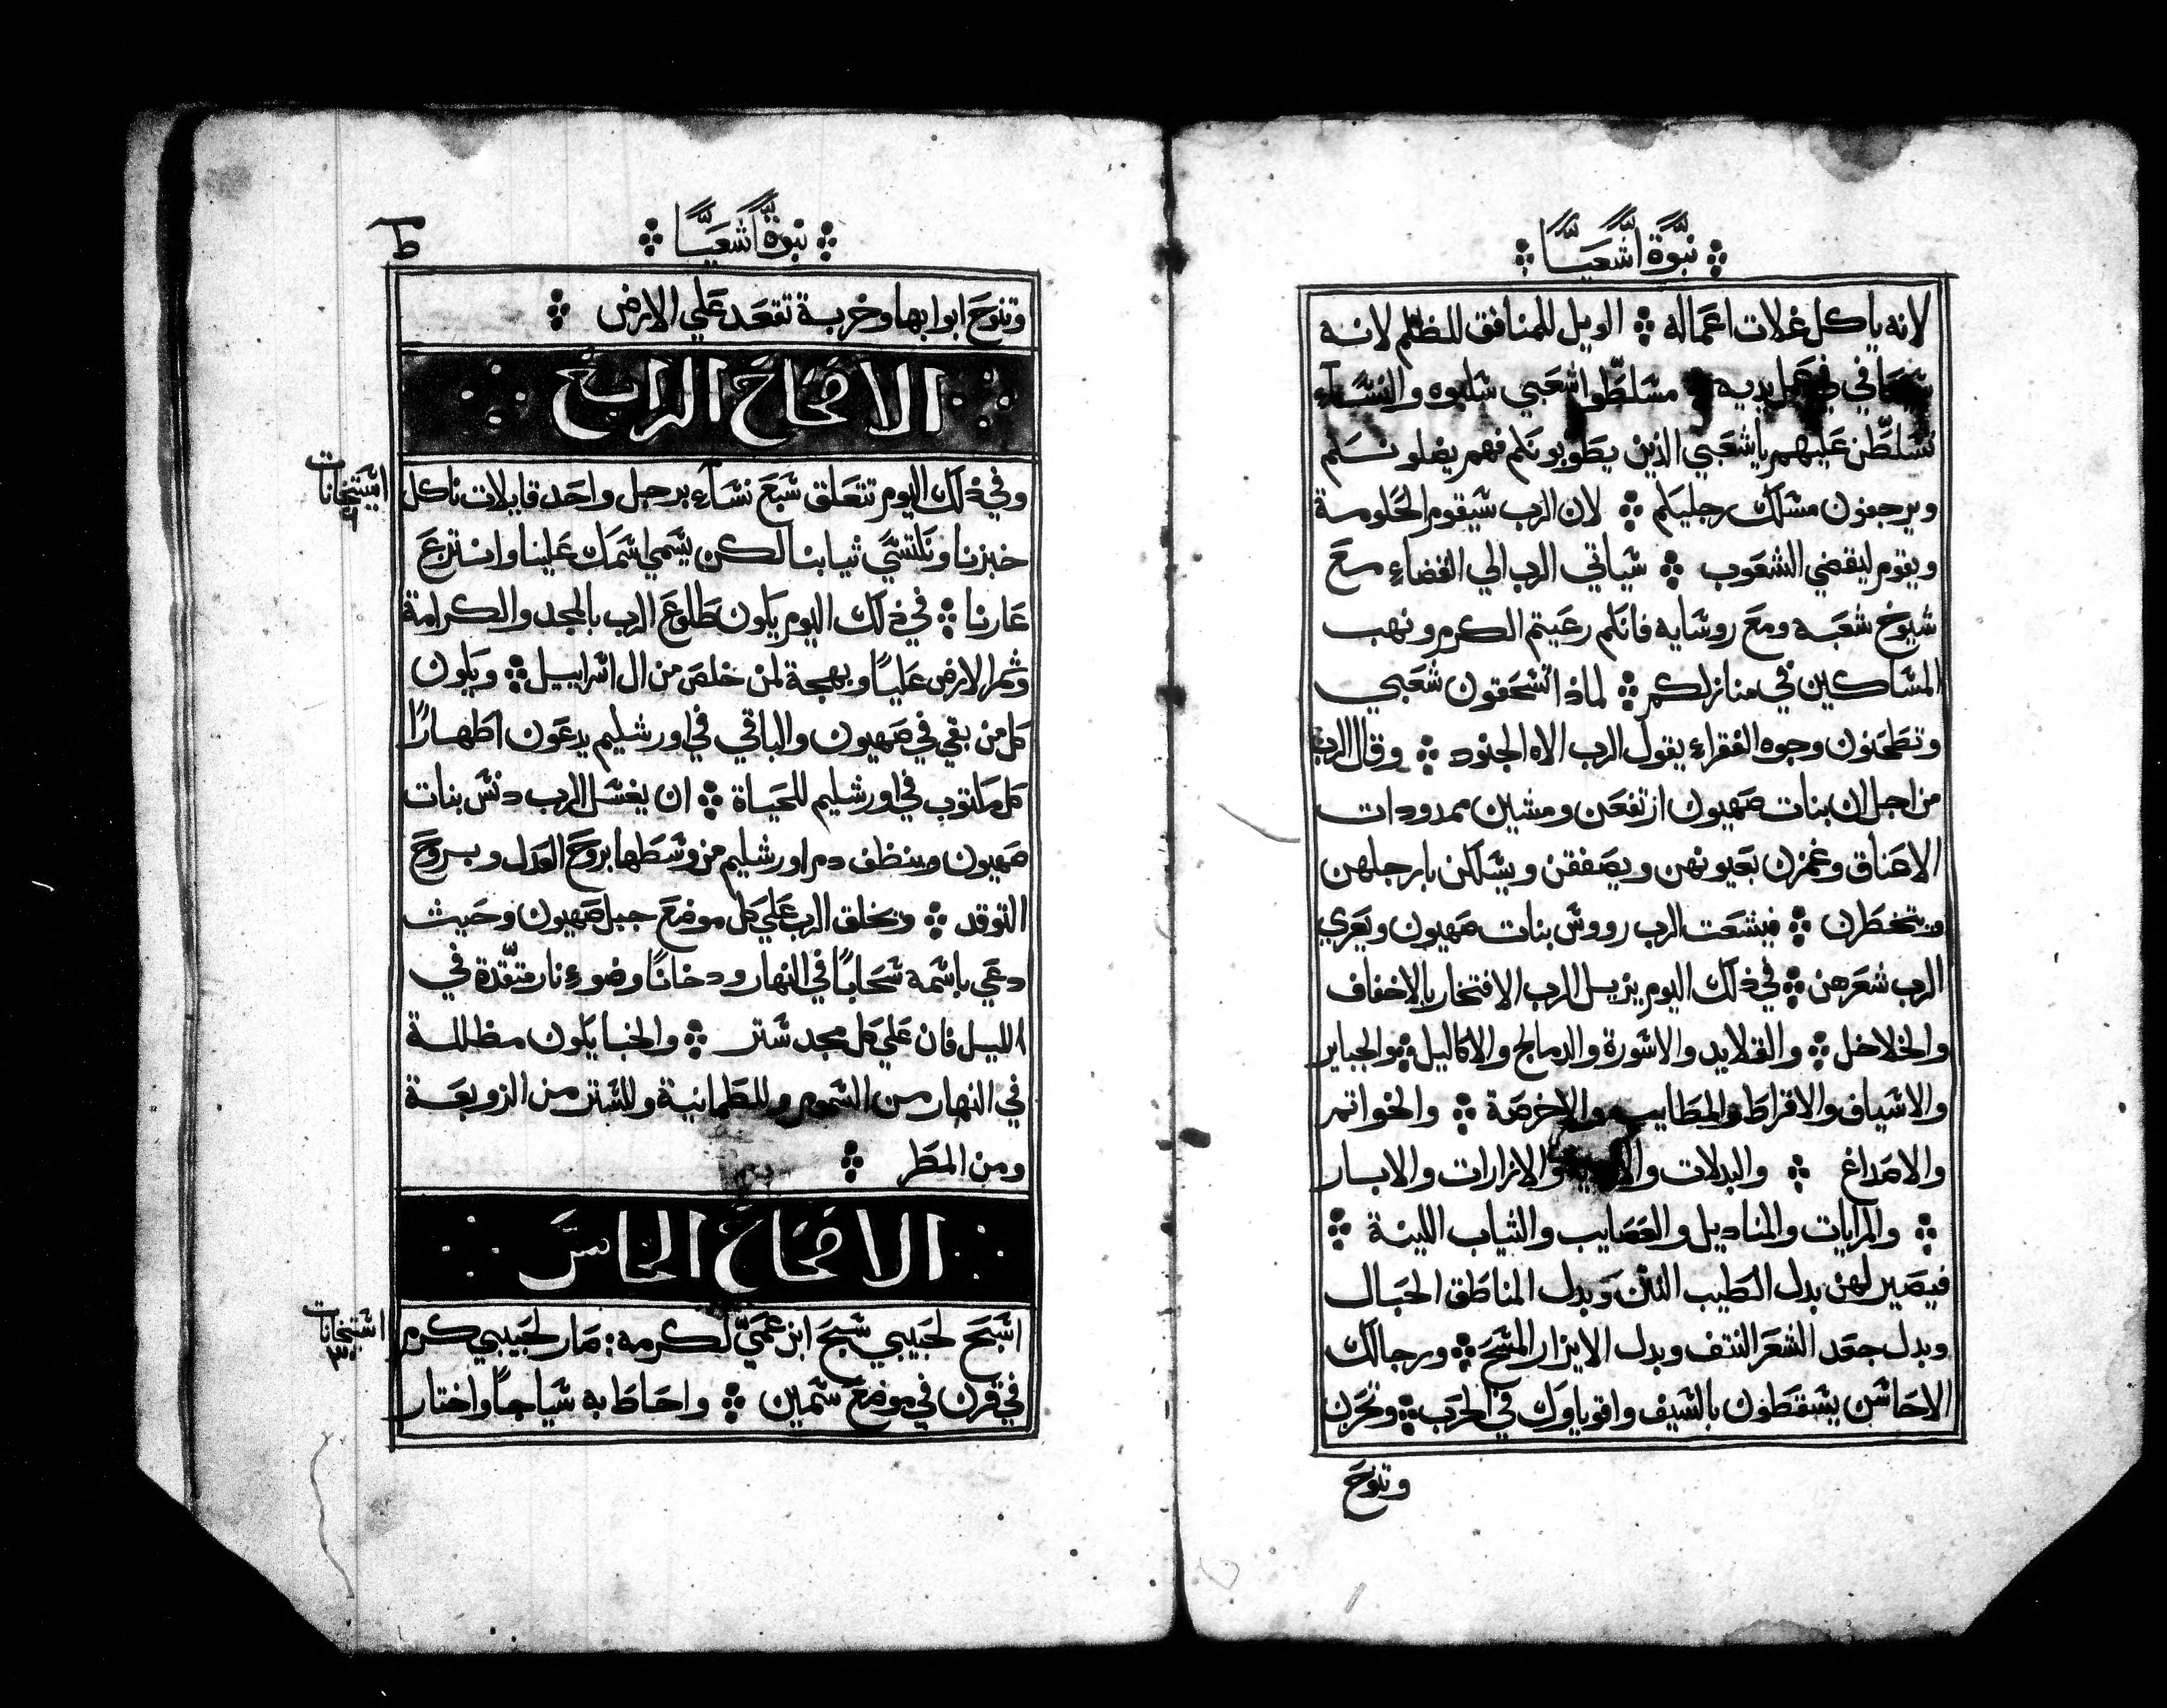 نبوّة اشعيا
لانه ياكل غلات اعماله ⁘ الويل للمنافق الظلم لانه
في يديه مسلطوا شعبي سلبوه والنسآء
تسلطن عليهم يا شعبي الذين يطوبونكم فهم يضلونكم
ويرجفون مسلك رجليكم ⁘ لان الرب سيقوم للحكومة
ويقوم ليقضي الشعوب ⁘ سياتي الرب الي القضاءِ مع
شيوخ شعبه ومع روسايه فانكم رعيتم الكرم ونهب
المساكين في منازلكم ⁘ لماذا تسحقون شعبي
وتطحنون وجوه الفقراءِ يقول الرب الاه الجنود ⁘ وقال الرب
من اجل ان بنات صهيون ارتفعن ومشين ممدودات
الاعناق وغمزن بعيونهن ويصفقن ويسلكن بارجلهن
ويتخطرن ⁘ فيشعت الرب رووس بنات صهيون ويعري
الرب شعرهن ⁘ في ذلك اليوم يزيل الرب الافتخار بالاخفاف
والخلاخل ⁘ والقلايد والاسورة والدمالج والاكاليل ⁘ والجباير
والاسياف والاقراط والمطاييب والاخرصة ⁘ والخواتم
والاصداغ ⁘ والبدلات والازارات والابار
⁘ والمرايات والمناديل والعصايب والثياب اللينة ⁘
فيصير لهن بدل الطيب النتن وبدل المناطق الحبال
وبدل جعد الشعر النتف وبدل الايزار المسح ⁘ ورجالك
الاحاسن يسقطون بالسيف واقوياوك في الحرب ⁘ وتحزن
وتنوح
نبوة اشعيا
ط
وتنوح ابوابها وخربة تقعد علي الارض ⁘
الافتتاح الرابع
وفي ذلك اليوم تتعلق سبع نسآءِ برجل واحد قايلات ناكل
خبزنا ونكتسي ثيابنا لكن يسمي اسمك علينا وانتزع
عارنا ⁘ في ذلك اليوم يكون طلوع الرب بالمجد والكرامة
وثمر الارض عليًا وبهجة لمن خلص من ال اسراييل ⁘ ويكون
كل من بقي في صهيون والباقي في اورشليم يدعون اطهارًا
كل مكتوب في اورشليم للحياة ⁘ ان يغسل الرب دنس بنات
صهيون وينظف دم اورشليم من وسطها بروح العدل وبروح
التوقد ⁘ ويخلق الرب علي كل موضع جبل صهيون وحيث
دعي باسمه سحابًا في النهار ودخانًا وضوءِ نار متقّدة في
الليل فان علي كل مجد ستر ⁘ والخبا يكون مظللة
في النهار من السموم وللطمانينة وللستر من الزوبعة
ومن المطر ⁘
الافتتاح الخامس
اسبح لحبيبي سبح ابن عمي لكرمه : صار لحبيبي كرم
في قرن في موضع سمين ⁘ واحاط به سياجًا واختار